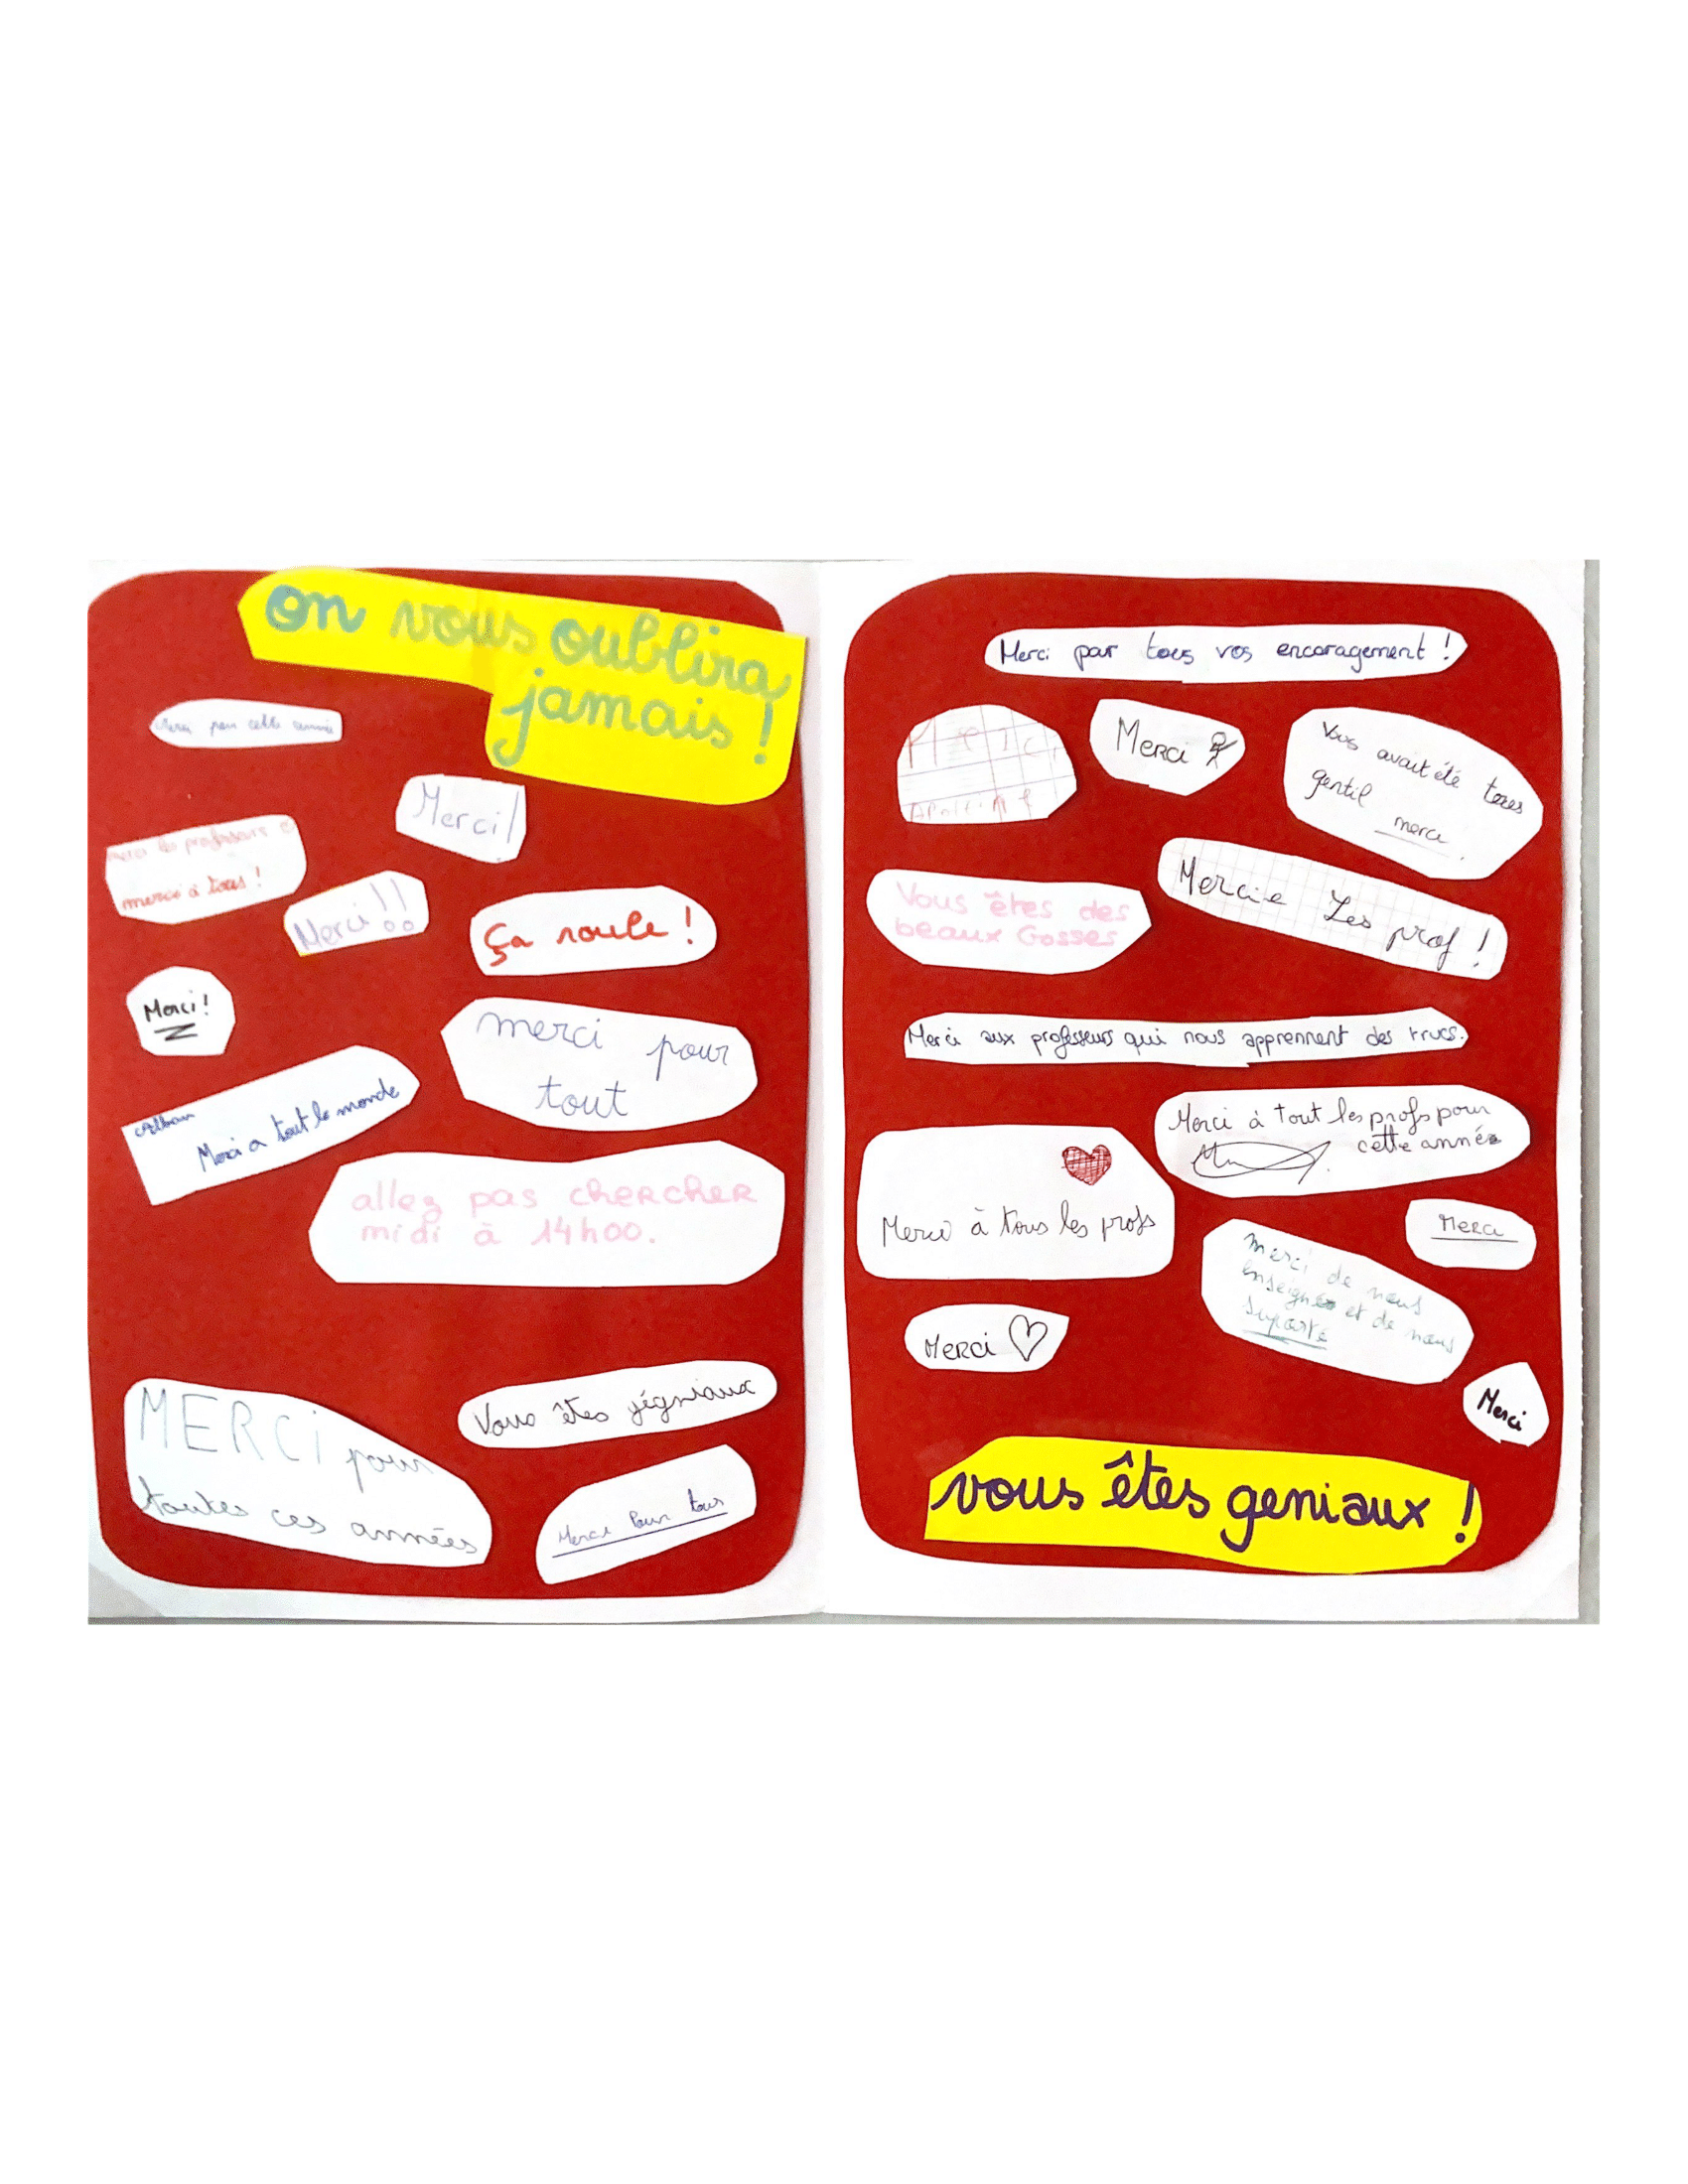 on vous oublira
jamais !
Merci pour cette année
Merci !
merci les professeurs
merci à tous !
Merci !!
Ça roule !
Merci !
merci pour
tout
Alban
Merci a tout le monde
allez pas chercher
midi à 14h00.
MERCi pour
toutes ces années
Vous êtes gégniaux
Merci pour tous
Merci par tous vos encoragement !
Merci
Merci
Vous avait été tous
gentil
merci.
Vous êtes des
beaux Gosses
Mercie Les prof !
Merci aux professeurs qui nous apprennent des trucs.
Merci à tout les profs pour
cette année
Merci à tous les profs
Merci
merci de nous
enseigné et de nous
suporté
Merci
Merci
vous êtes geniaux !